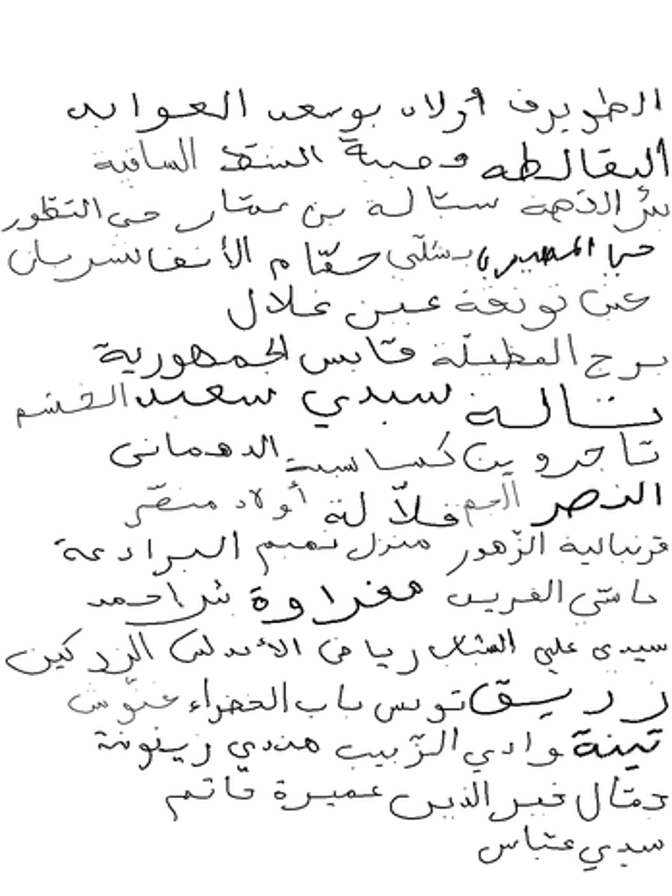 الطويرف أولاد بوسعيد العوابد
البقالطة قصيبة الشط الساقية
بئر الدخلة ستالة بن عمار حي التطور
حمام الأنف
عين غلال
برج المظيلة قابس الجمهورية
تالة سيدي سعيد القشيم
تاجروين كساسبية الدهماني
النصر الجم فلالة أولاد منصر
قرنبالية الزهور منزل تميم البرادعة
حاسي الفريد مغراوة بئر احمد
سيدي علي الشباب رياض الأندلس الزركين
زريق تونس باب الخضراء غنوش
تينة وادي الزبيب هندي زيتونة
جمال خير الدين عميرة حاتم
سيدي عباس